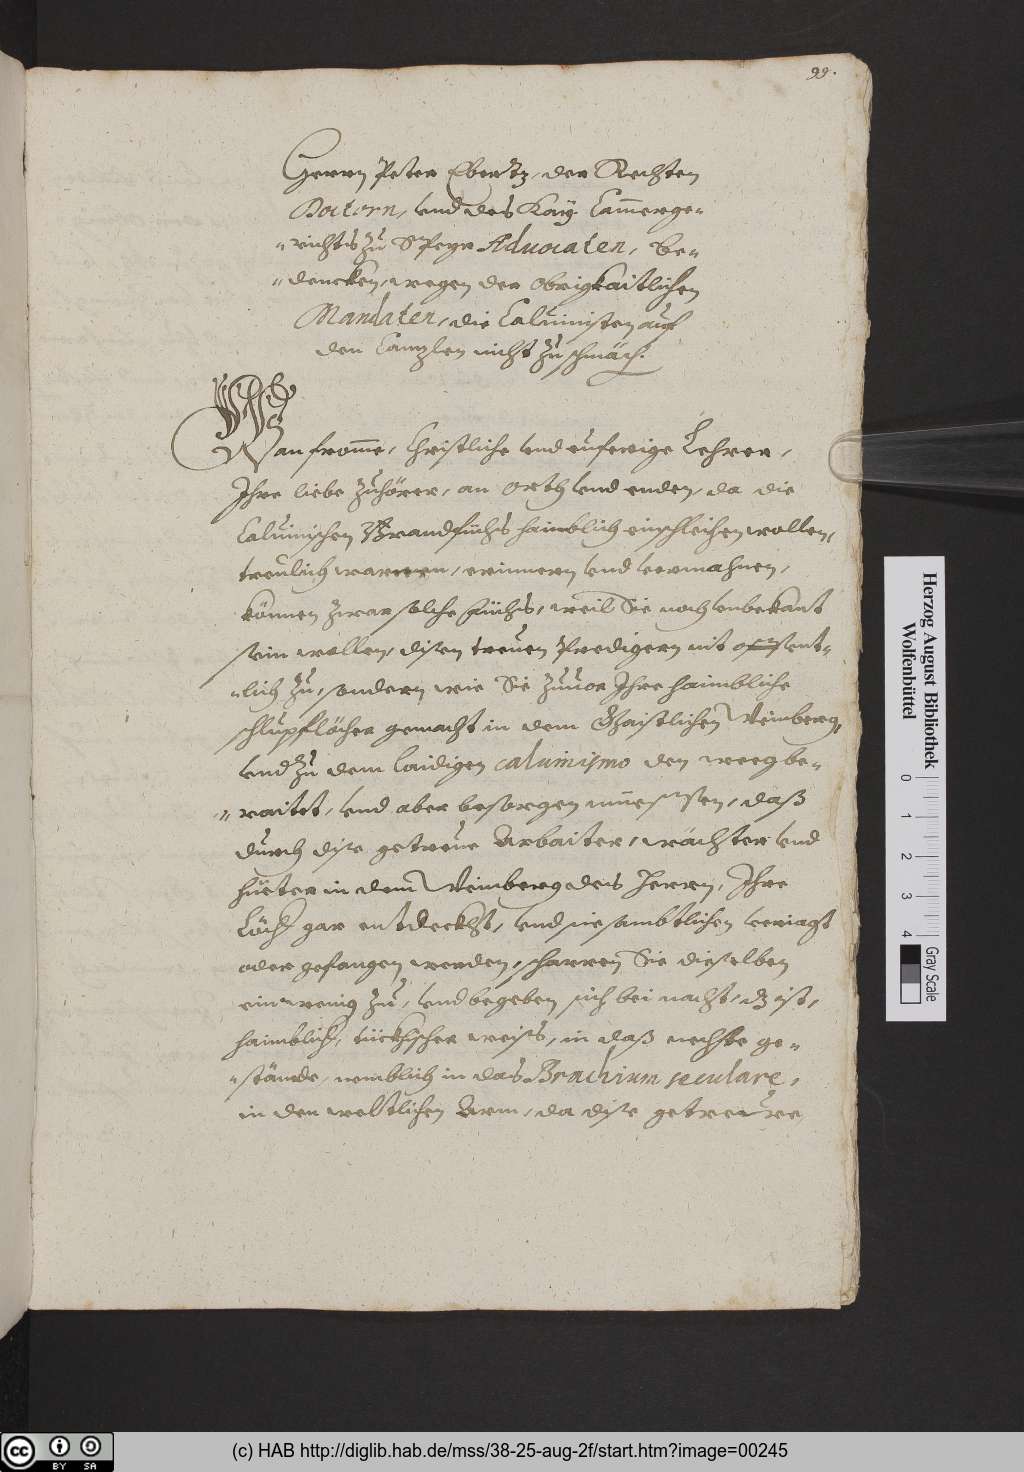 99.
Herrn Peter Ebertz, der Rechten
Doctorn, vnd des Kay: Cammerge-
-richts zu Speyr Aduocaten, Be-
-dencken, wegen der obrigkaitlichen
Mandaten, die Caluinisten auff
den Canzlen nicht zu schmäch:
Wan fromme, Christliche vnd eyferige Lehrer,
Ihre liebe zuhörer, an orth vnd enden, da die
Caluinischen Brandfüchs haimblich einschleichen wollen,
treulich warnen, erinnern vnd vermahnen,
können zwar solche füchs, weil Sie noch vnbekant
sein wollen, disen treuen Predigern nit offent-
-lich zu, sondern wie Sie zuuor Ihre haimbliche
schlupflöcher gemacht in dem Gaistlichen Weinberg,
vnd zu dem laidigen caluinismo den weeg be-
-raitet, vnd aber besorgen müessen, daß
durch dise getreue Arbaiter, wächter vnd
hüeter in dem Weinberg des Herrn, Ihre
Löch: gar entdeckht, vnd sie sambtlichen veriagt
oder gefangen werden, scharren Sie dieselben
ein wenig zu, vnd begeben sich bei nacht, dz ist,
haimblich, tückhischer weiß, in daß nechste ge-
-stäude, nemblich in das Brachium seculare,
in den weltlichen Arm, da dise getreüe
Herzog August Bibliothek
Wolfenbüttel
0 1 2 3 4
Gray Scale
cc BY SA
(c) HAB http://diglib.hab.de/mss/38-25-aug-2f/start.htm?image=00245